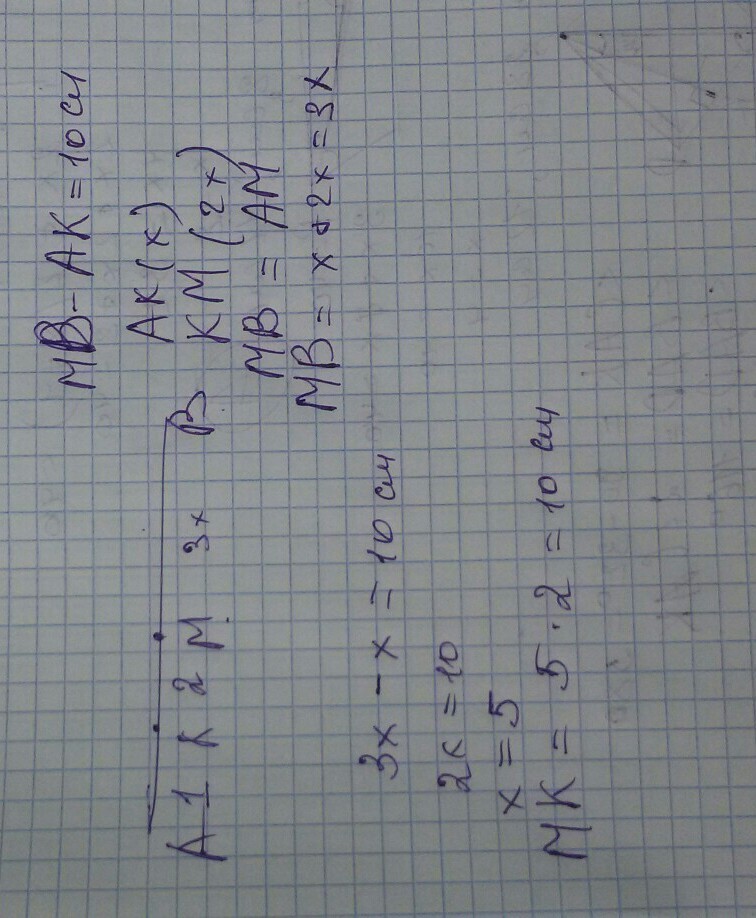 MB - AK = 10 см
AK (x)
KM (2x)
MB = AM
MB = x + 2x = 3x
A 1 K 2 M 3x B
3x - x = 10 см
2x = 10
x = 5
MK = 5 · 2 = 10 см